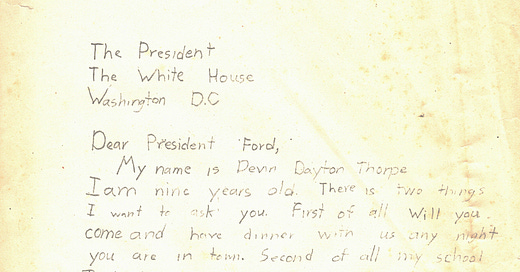 The President
The White House
Washington D.C
Dear President Ford,
My name is Devin Dayton Thorpe
I am nine years old. There is two things
I want to ask you. First of all Will you
come and have dinner with us any night
you are in town. Second of all my school